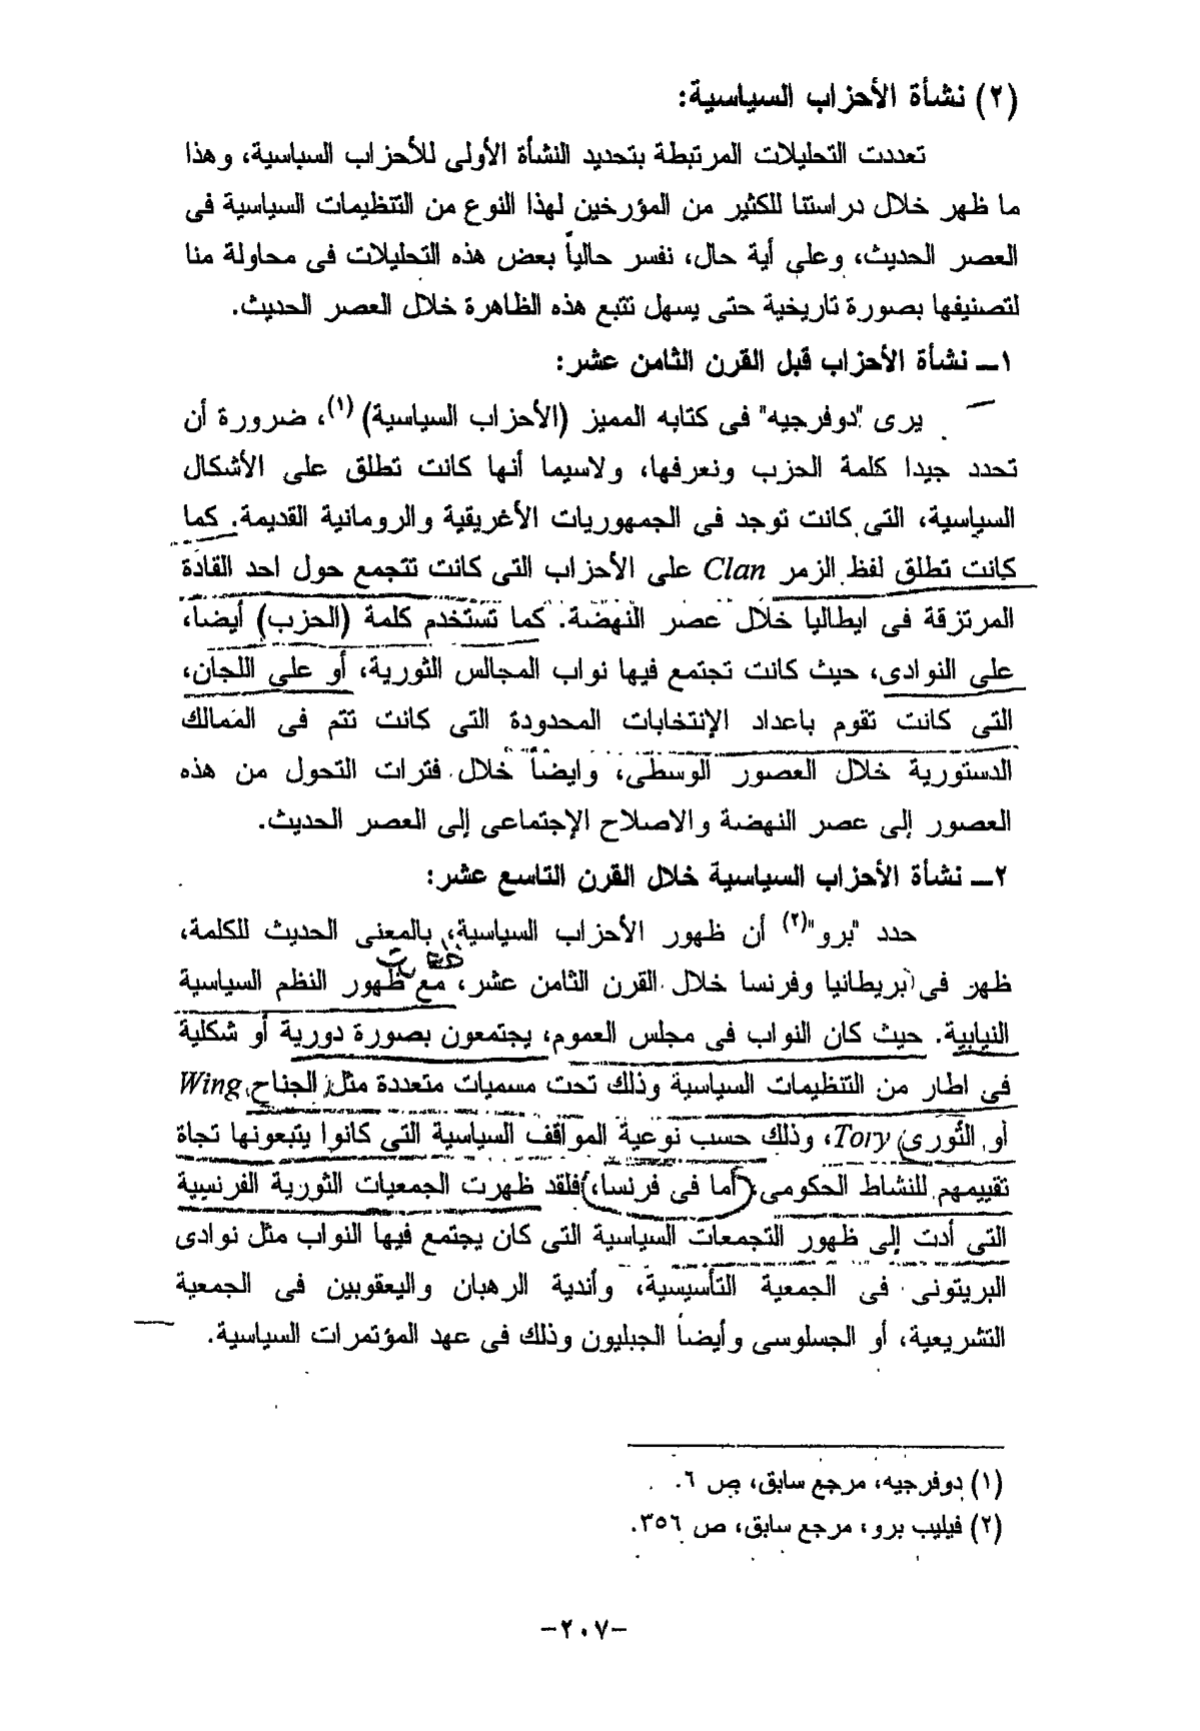 (٢) نشأة الأحزاب السياسية:
تعددت التحليلات المرتبطة بتحديد النشأة الأولى للأحزاب السياسية، وهذا
ما ظهر خلال دراستنا للكثير من المؤرخين لهذا النوع من التنظيمات السياسية فى
العصر الحديث، وعلى أية حال، نفسر حالياً بعض هذه التحليلات فى محاولة منا
لتصنيفها بصورة تاريخية حتى يسهل تتبع هذه الظاهرة خلال العصر الحديث.
١ــ نشأة الأحزاب قبل القرن الثامن عشر:
يرى "دوفرجيه" فى كتابه المميز (الأحزاب السياسية) (١)، ضرورة أن
تحدد جيدا كلمة الحزب ونعرفها، ولاسيما أنها كانت تطلق على الأشكال
السياسية، التى كانت توجد فى الجمهوريات الأغريقية والرومانية القديمة. كما
كانت تطلق لفظ الزمر Clan على الأحزاب التى كانت تتجمع حول احد القادة
المرتزقة فى ايطاليا خلال عصر النهضة. كما تستخدم كلمة (الحزب) أيضا،
على النوادى، حيث كانت تجتمع فيها نواب المجالس الثورية، أو على اللجان،
التى كانت تقوم باعداد الإنتخابات المحدودة التى كانت تتم فى الممالك
الدستورية خلال العصور الوسطى، وايضاً خلال فترات التحول من هذه
العصور إلى عصر النهضة والاصلاح الإجتماعى إلى العصر الحديث.
٢ــ نشأة الأحزاب السياسية خلال القرن التاسع عشر:
حدد "برو"(٢) أن ظهور الأحزاب السياسية، بالمعنى الحديث للكلمة،
ظهر فى بريطانيا وفرنسا خلال القرن الثامن عشر، مع ظهور النظم السياسية
النيابية. حيث كان النواب فى مجلس العموم، يجتمعون بصورة دورية أو شكلية
فى اطار من التنظيمات السياسية وذلك تحت مسميات متعددة مثل الجناح Wing
أو الثورى Tory، وذلك حسب نوعية المواقف السياسية التى كانوا يتبعونها تجاة
تقييمهم للنشاط الحكومى، (أما فى فرنسا،) فلقد ظهرت الجمعيات الثورية الفرنسية
التى أدت إلى ظهور التجمعات السياسية التى كان يجتمع فيها النواب مثل نوادى
البريتونى فى الجمعية التأسيسية، وأندية الرهبان واليعقوبين فى الجمعية
التشريعية، أو الجسلوسى وأيضاً الجبليون وذلك فى عهد المؤتمرات السياسية.
(١) دوفرجيه، مرجع سابق، ص ٦.
(٢) فيليب برو، مرجع سابق، ص ٣٥٦.
-٢٠٧-